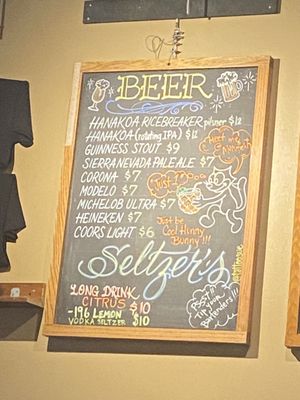 BEER
HANAKOA RICEBREAKER pilsner $12
HANAKOA (rotating IPA) $12
GUINNESS STOUT $9
SIERRA NEVADA PALE ALE $7
CORONA $7
MODELO $7
MICHELOB ULTRA $7
HEINEKEN $7
COORS LIGHT $6
Just
Just be
Cool Hunny
Bunny!!!
Seltzer's
LONG DRINK
CITRUS $10
-196 LEMON
VODKA SELTZER $10
Tip your
Bartenders!!!